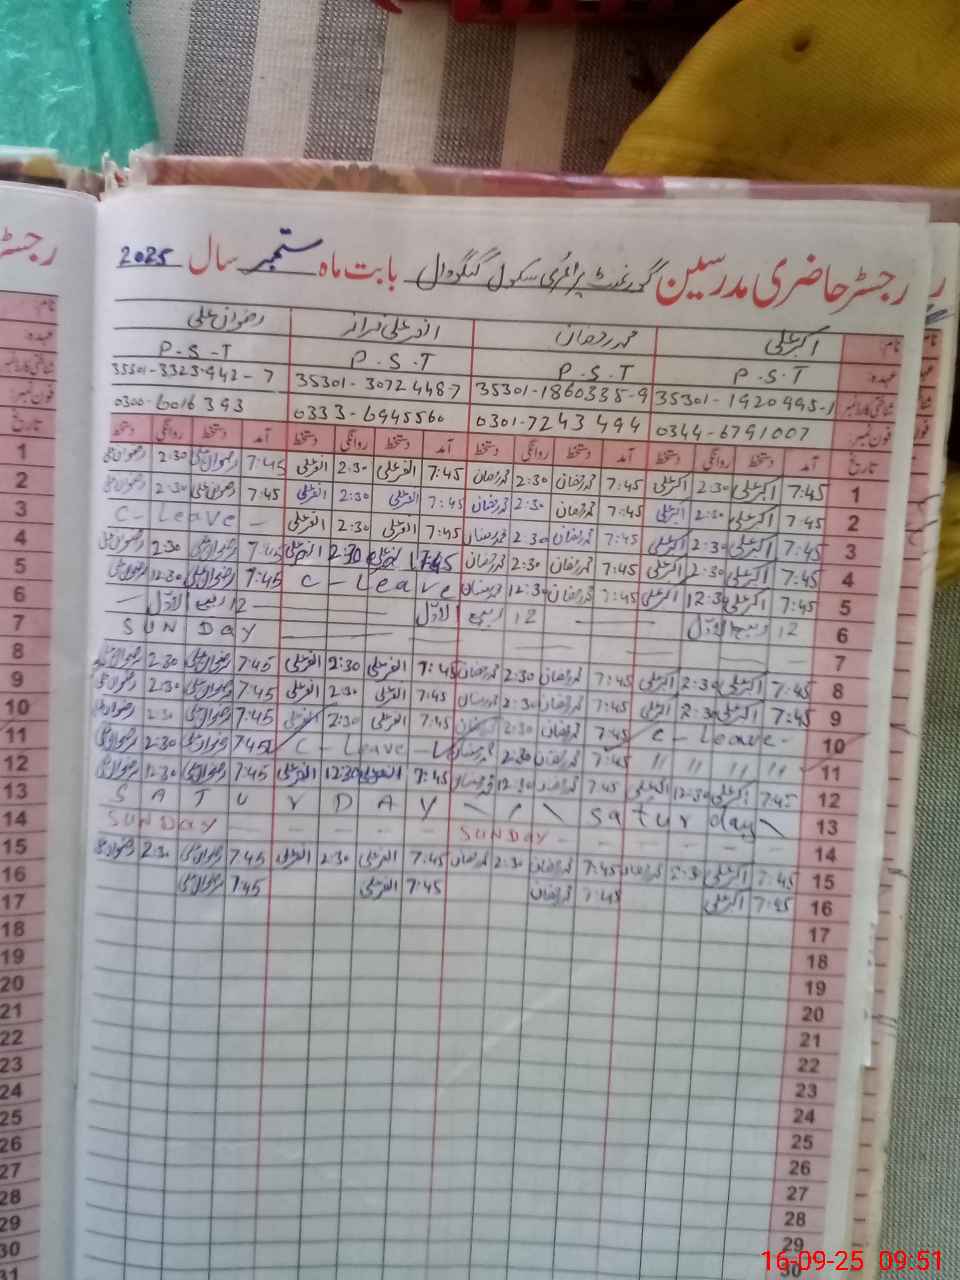 رجسٹر حاضری مدرسین گورنمنٹ پرائمری سکول گنگووال بابت ماہ ستمبر سال 2025
نام: اکبر علی محمد رمضان انور علی فراز رضوان علی
عہدہ: P.S.T P.S.T P.S.T P.S.T
شناختی کارڈ نمبر 35301-1920495-1 35301-1860335-9 35301-3072448-7 35301-3323942-7
فون نمبر: 0344-6791007 0301-7243494 0333-6945560 0300-6016393
تاریخ آمد دستخط روانگی دستخط آمد دستخط روانگی دستخط آمد دستخط روانگی دستخط آمد دستخط روانگی دستخط
1 7:45 اکبر علی 2:30 اکبر علی 7:45 محمد رمضان 2:30 محمد رمضان 7:45 انور علی 2:30 انور علی 7:45 رضوان علی 2:30 رضوان علی
2 7:45 اکبر علی 2:30 اکبر علی 7:45 محمد رمضان 2:30 محمد رمضان 7:45 انور علی 2:30 انور علی 7:45 رضوان علی 2:30 رضوان علی
3 7:45 اکبر علی 2:30 اکبر علی 7:45 محمد رمضان 2:30 محمد رمضان 7:45 انور علی 2:30 انور علی C-Leave -
4 7:45 اکبر علی 2:30 اکبر علی 7:45 محمد رمضان 2:30 محمد رمضان 7:45 انور علی 2:30 انور علی 7:45 رضوان علی 2:30 رضوان علی
5 7:45 اکبر علی 12:30 اکبر علی 7:45 محمد رمضان 12:30 محمد رمضان C-Leave 7:45 رضوان علی 12:30 رضوان علی
6 12 ربیع الاوّل 12 ربیع الاوّل 12 ربیع الاوّل
7 SUNDAY
8 7:45 اکبر علی 2:30 اکبر علی 7:45 محمد رمضان 2:30 محمد رمضان 7:45 انور علی 2:30 انور علی 7:45 رضوان علی 2:30 رضوان علی
9 7:45 اکبر علی 2:30 اکبر علی 7:45 محمد رمضان 2:30 محمد رمضان 7:45 انور علی 2:30 انور علی 7:45 رضوان علی 2:30 رضوان علی
10 C-Leave- 7:45 محمد رمضان 2:30 محمد رمضان 7:45 انور علی 2:30 انور علی 7:45 رضوان علی 2:30 رضوان علی
11 〃 〃 〃 〃 7:45 محمد رمضان 2:30 محمد رمضان C-Leave- 7:45 رضوان علی 2:30 رضوان علی
12 7:45 اکبر علی 12:30 اکبر علی 7:45 محمد رمضان 12:30 محمد رمضان 7:45 انور علی 12:30 انور علی 7:45 رضوان علی 12:30 رضوان علی
13 SATURDAY Saturday
14 SUNDAY SUNDAY-
15 7:45 اکبر علی 2:30 7:45 محمد رمضان 2:30 محمد رمضان 7:45 انور علی 2:30 انور علی 7:45 رضوان علی 2:30 رضوان علی
16 7:45 اکبر علی 7:45 محمد رمضان 7:45 انور علی 7:45 رضوان علی
17
18
19
20
21
22
23
24
25
26
27
28
29
30
31
16-09-25 09:51